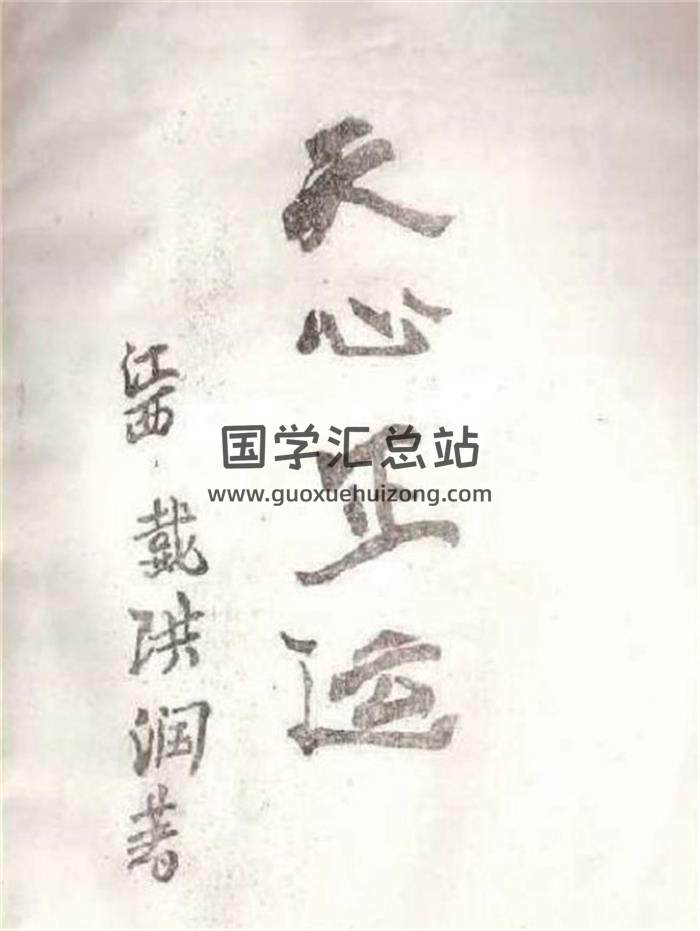 天心正运
江西·戴洪润著
国学汇总站
www.guoxuehuizong.com